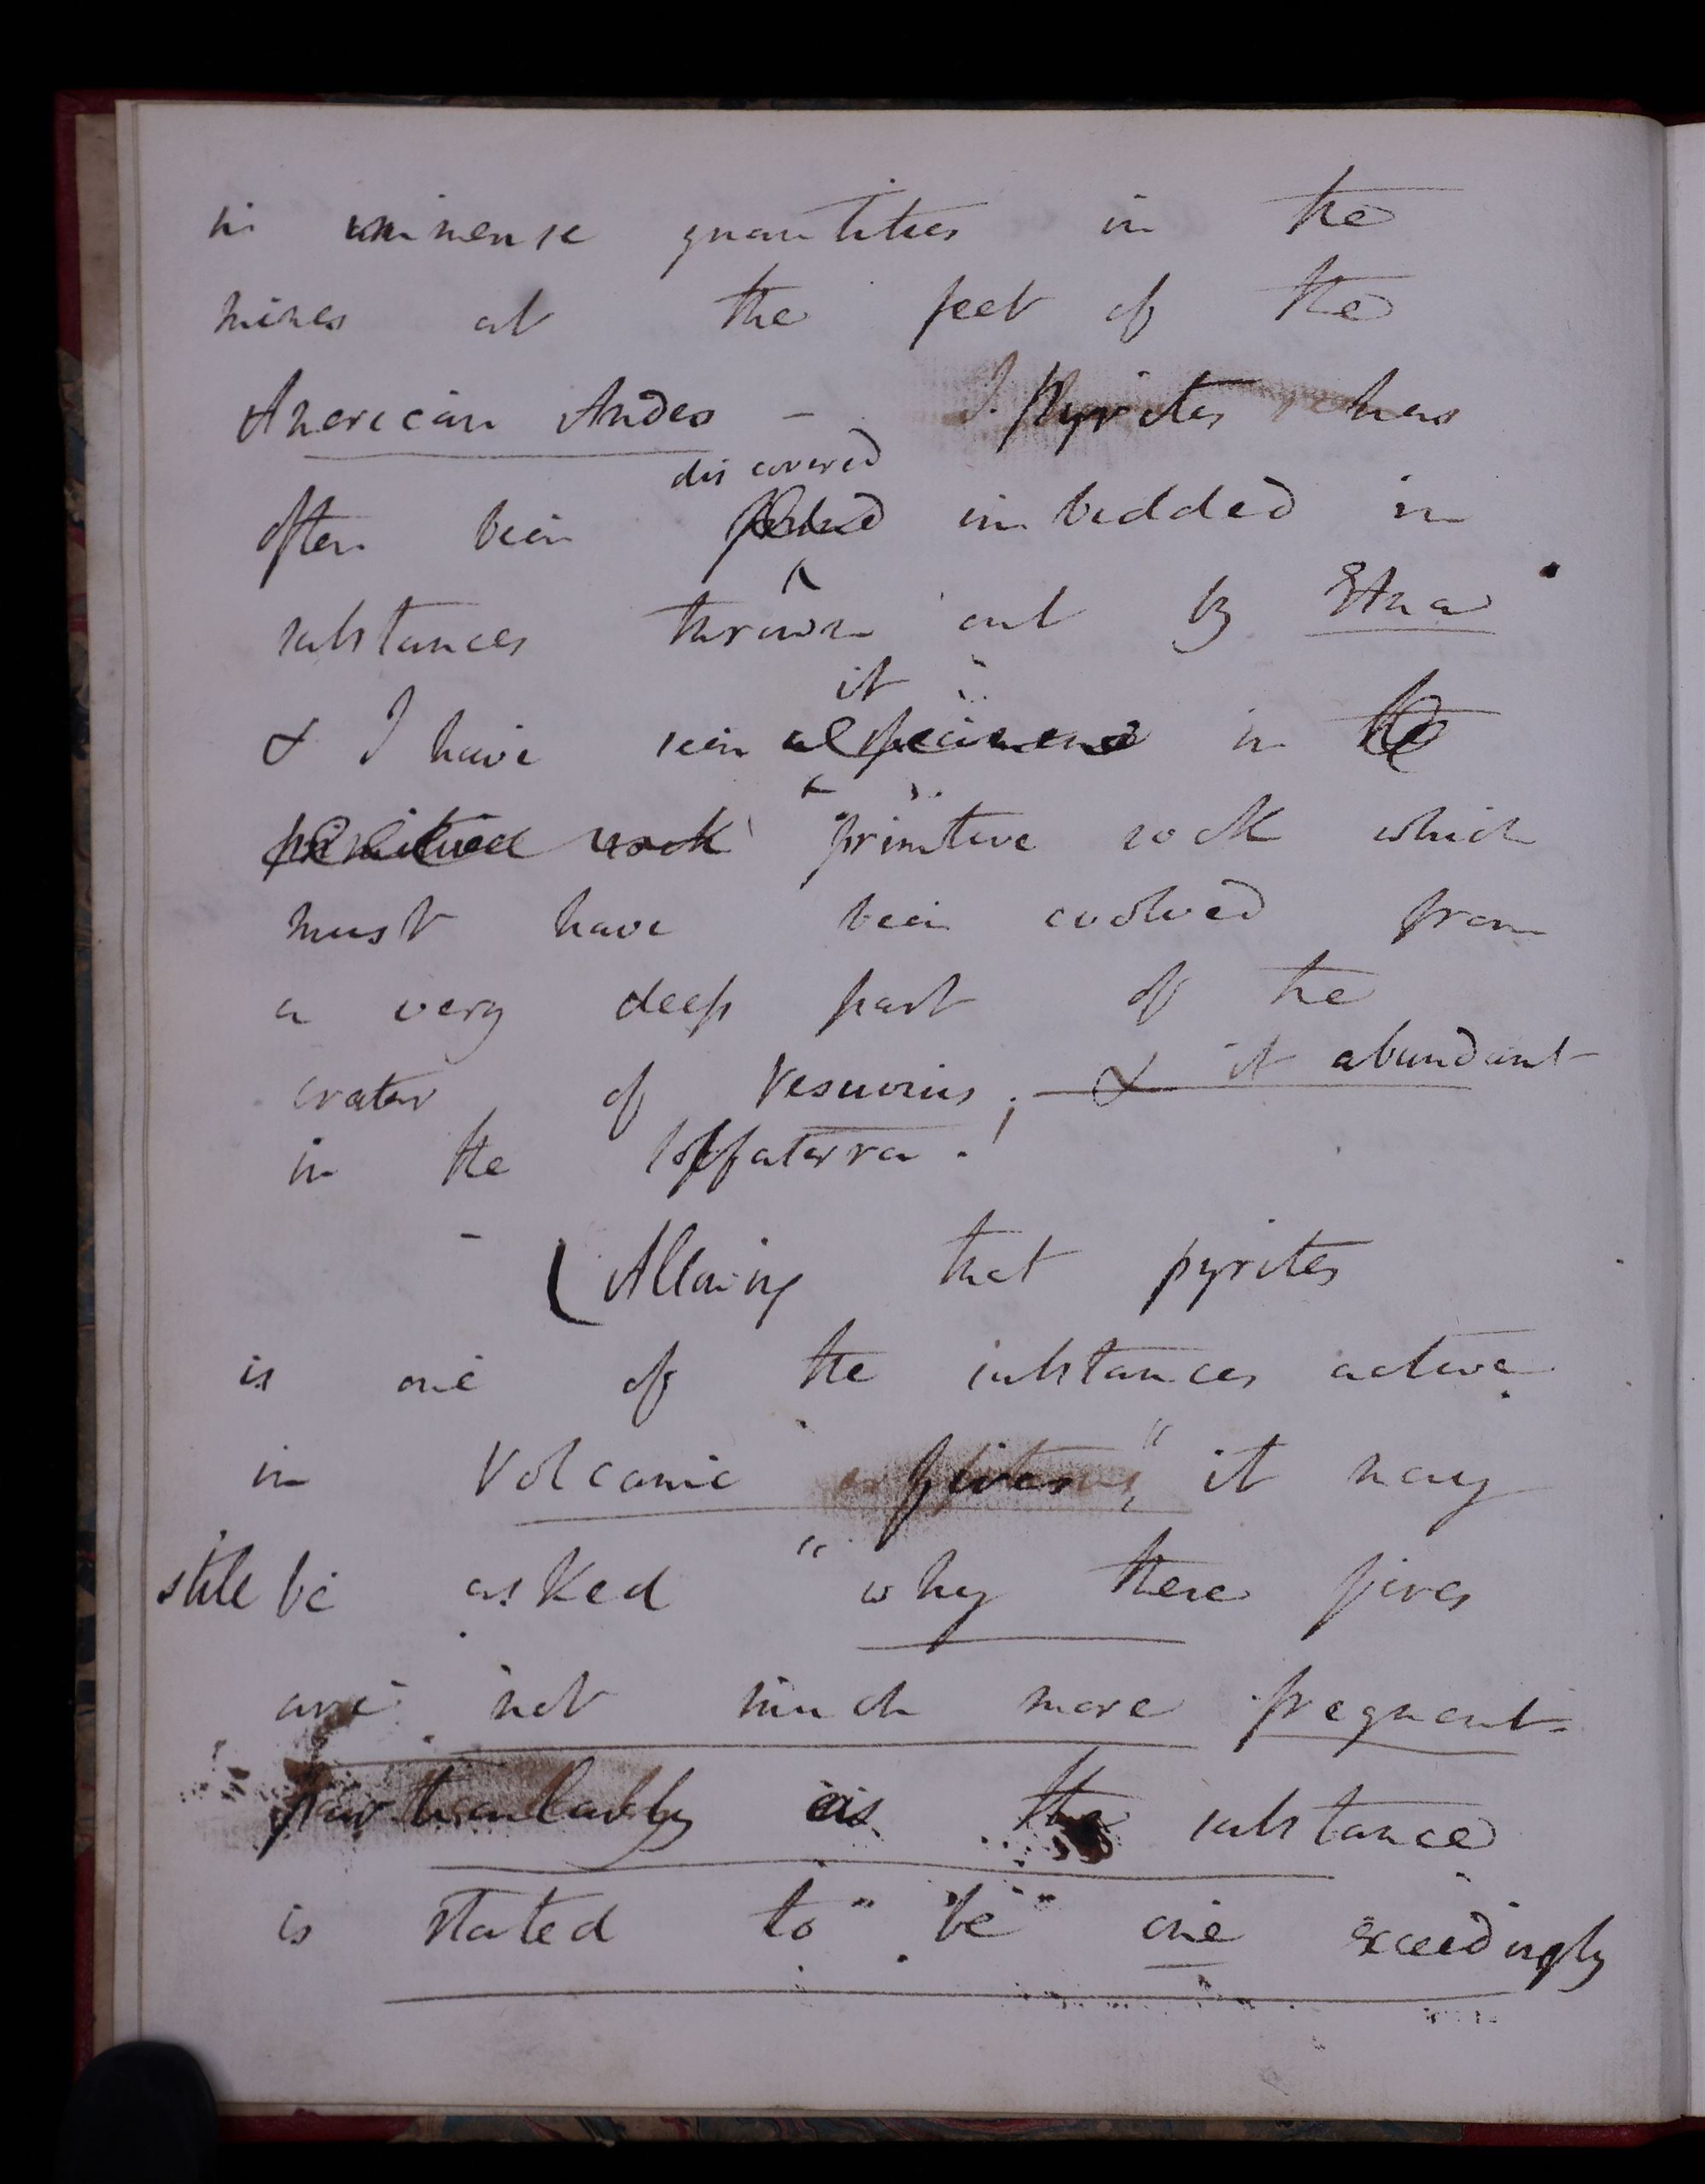 in immense quantities in the
mines at the feet of the
American Andes – Pyrites has
discovered
often been found imbedded in
substances thrown out by Etna
it
& I have seen a specimen in the
primitive rock primitive rock which
must have been evolved from
a very deep part of the
crater of Vesuvius; – & it abundant
in the Solfaterra. –
(Allowing that pyrites
is one of the substances active
in Volcanic fires," it may
still be asked "why these fires
are not much more frequent
particularly as the substance
is stated to "be" one exceedingly